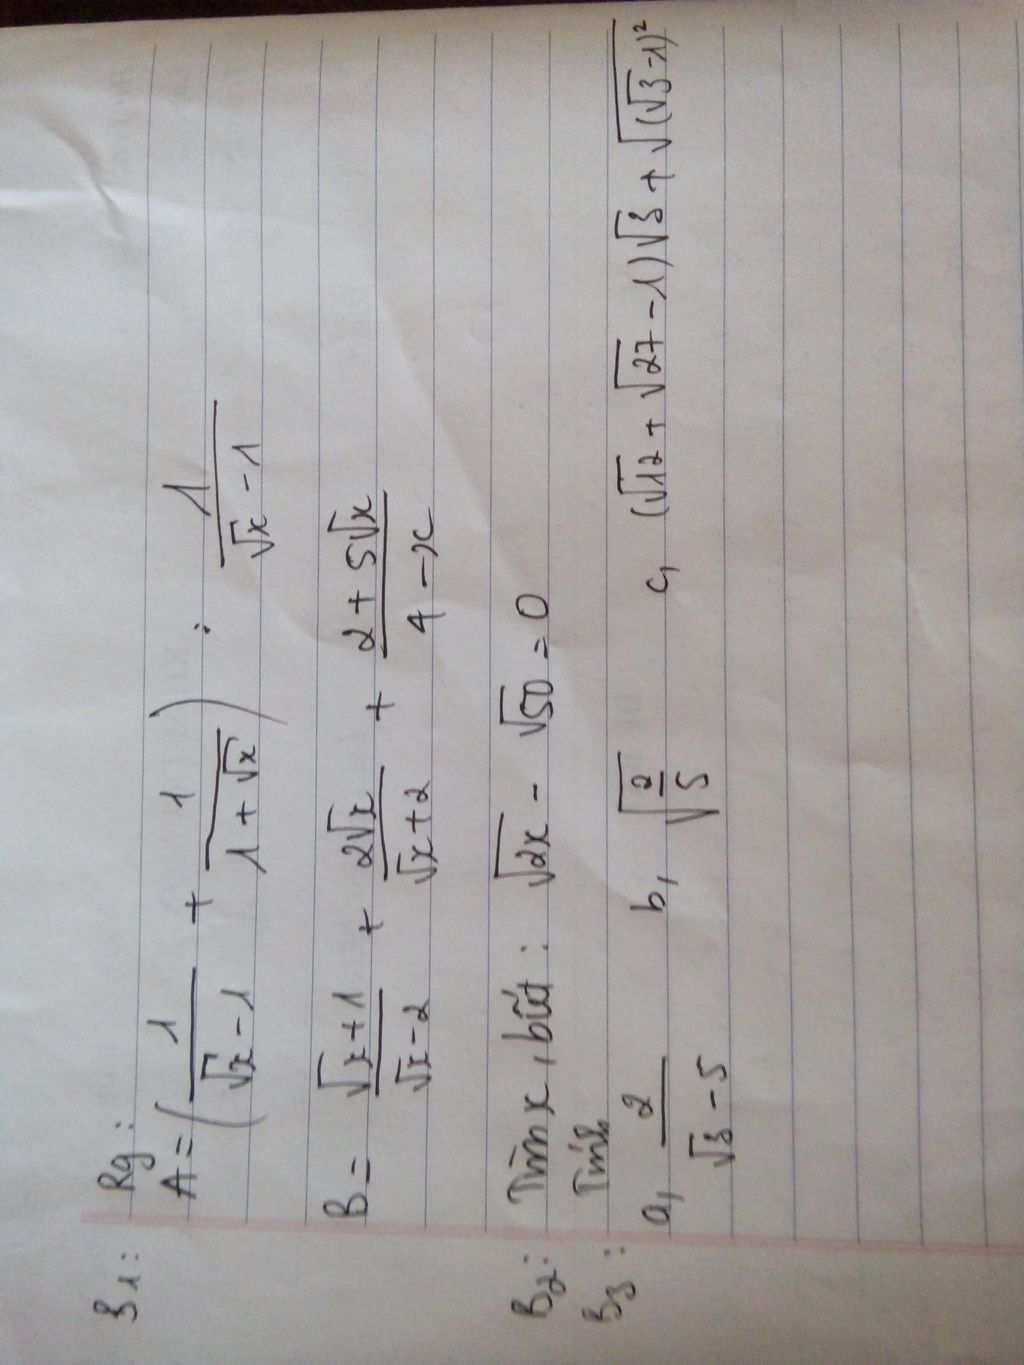 B1: Rg:
A = ( 1/(√x - 1) + 1/(1 + √x) ) : 1/(√x - 1)
B = (√x + 1)/(√x - 2) + 2√x/(√x + 2) + (2 + 5√x)/(4 - x)
B2: Tìm x, biết: √2x - √50 = 0
B3: Tính
a, 2/(√3 - 5) b, √(2/5) c, (√12 + √27 - 1)√3 + √((√3 - 1)²)